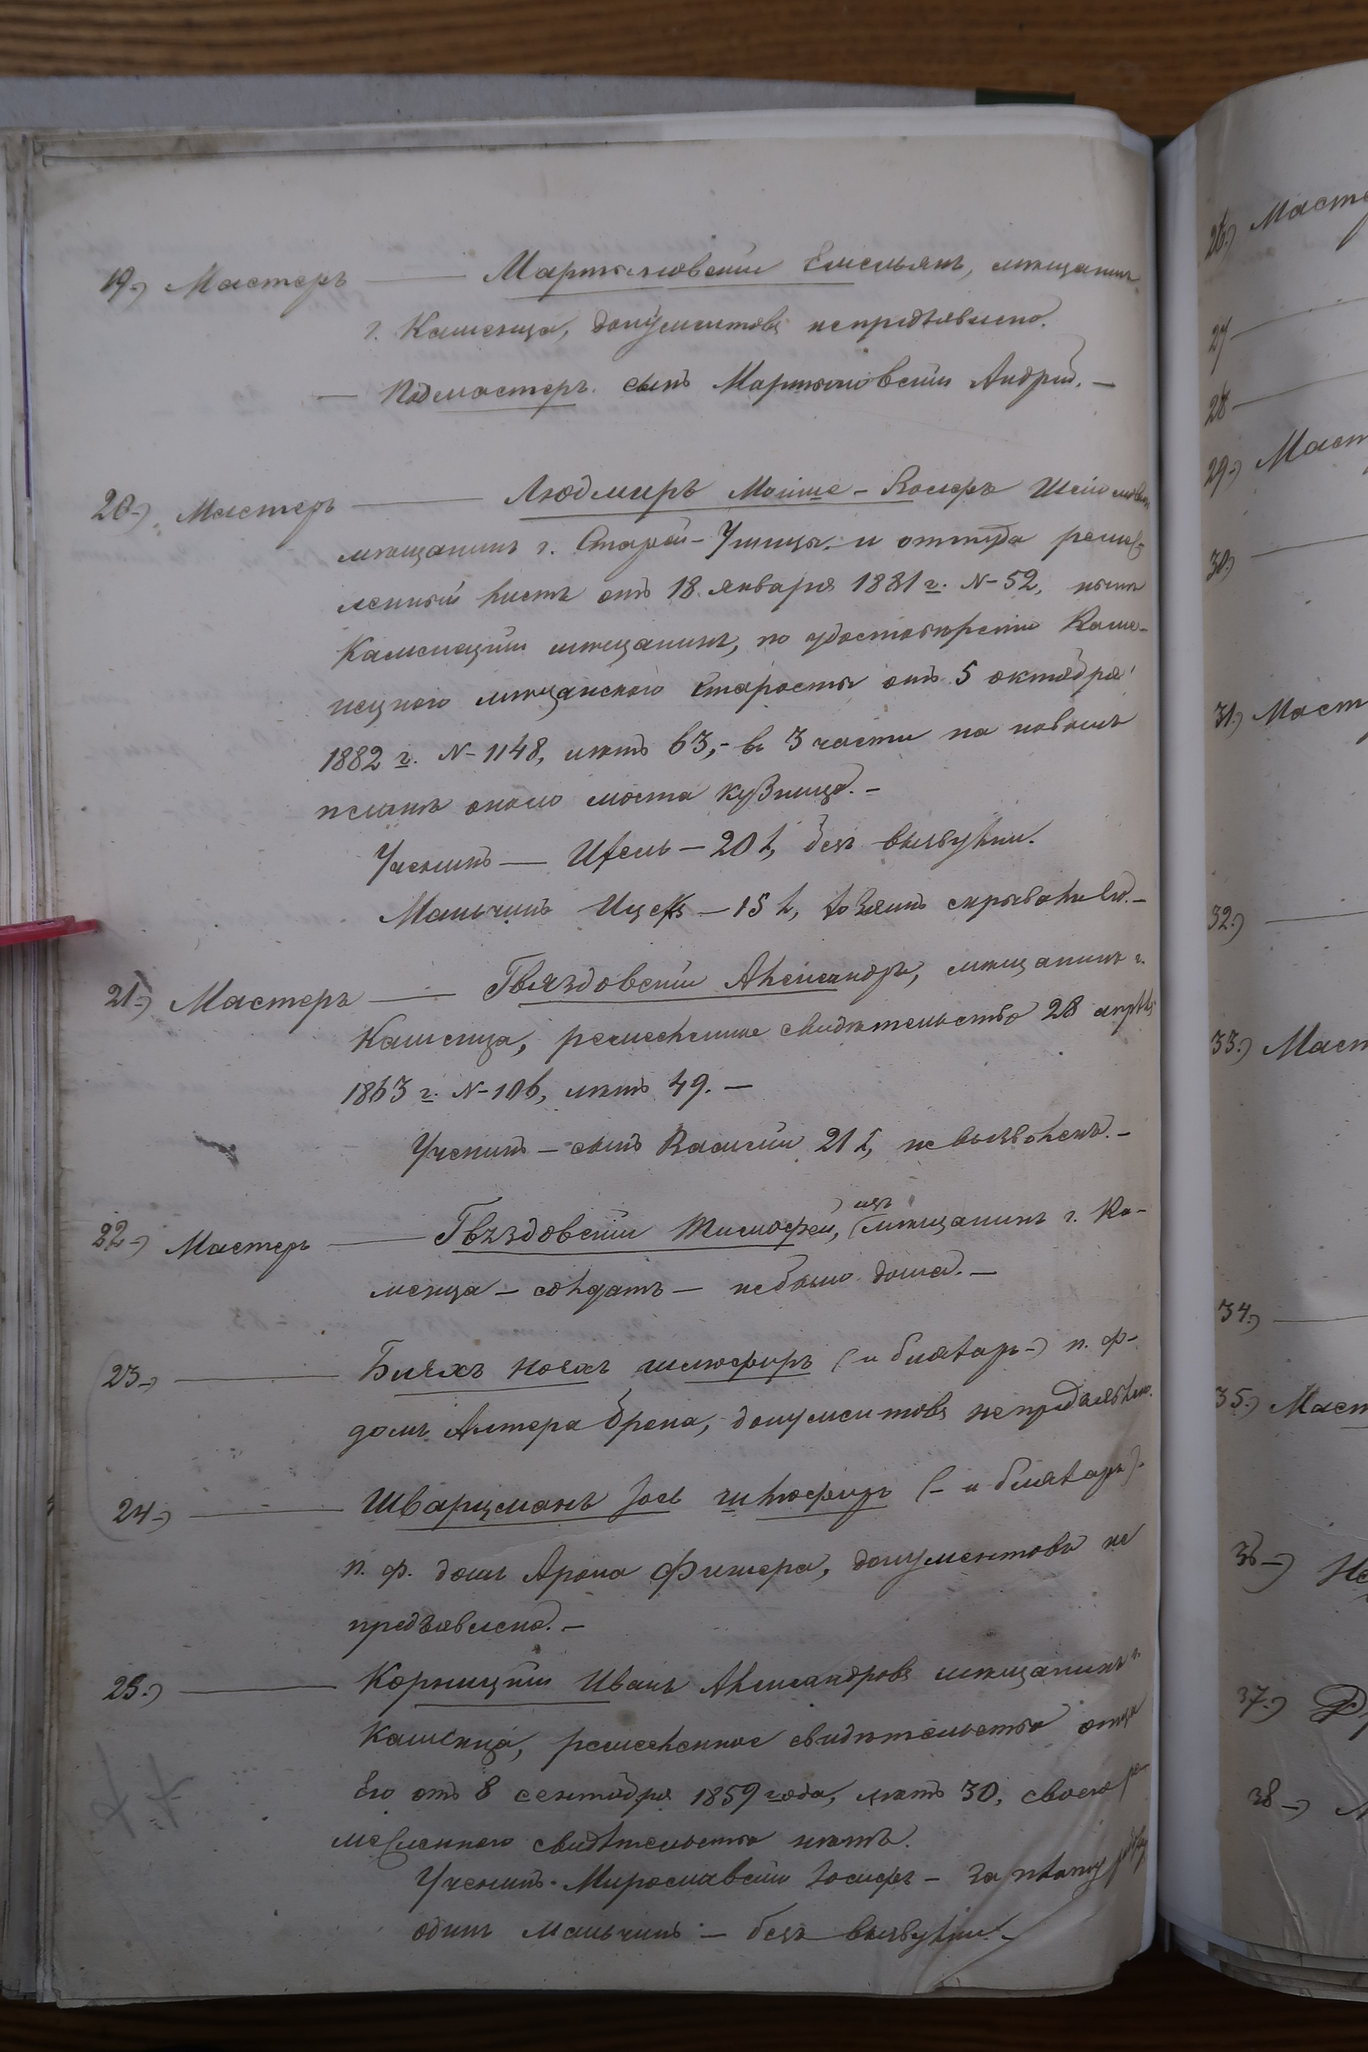 19.) Мастеръ — Мартыновскій Емельянъ, мѣщанинъ
г. Каменца, документовъ непредъявлено.
— Подмастеръ. сынъ Мартыновскій Андрей. —
20.) Мастеръ — Людмиръ Мойше-Іосефъ
мѣщанинъ г. Старой-Ушицы. и оттуда ремес-
ленный листъ отъ 18 января 1881 г. N-52, нынѣ
Каменецкій мѣщанинъ, по удостовѣренію Каме-
нецкого мѣщанского Старосты отъ 5 октября
1882 г. N-1148, лѣтъ 63,- в 3 части на новомъ
планѣ около моста кузница. —
Ученикъ — 20 л, безъ выявулки.
Мальчикъ Ицекъ — 15 л, хозяинъ скрывалъ его. —
21.) Мастеръ — Гвяздовскій Александръ, мѣщанинъ г.
Каменца, ремесленное свидѣтельство 28
1863 г. N-106, лѣтъ 49. —
Ученикъ — сынъ Василій 21 л, не выявленъ. —
22.) Мастеръ — Гвѣздовскій Тимофей, (изъ мѣщанинъ г. Ка-
менца — солдатъ — не было дома. —
23.) — Бляхъ Нояхъ шлюсфиръ (и бляхаръ-) п. ф-
домъ Алтера Брена, документовъ непредъявлено.
24.) — Шварцманъ Іось шлюсфиръ (- и бляхаръ).
п. ф. домъ Арона Фишера, документовъ не
предъявлено. —
25.) — Корницкій Иванъ Александровъ мѣщанинъ г.
Каменца, ремесленное свидѣтельство отца
Его отъ 8 сентября 1859 года, лѣтъ 30, своего ре-
месленного свидѣтельства нѣтъ.
Ученикъ. Мирославскій Іосифъ — за плату
одинъ мальчикъ — безъ выявулки. —
26.) Масте
27
28
29.) Маст
30.)
31.) Маст
32.)
33.) Маст
34.)
35.) Маст
36-)
37.)
38-)